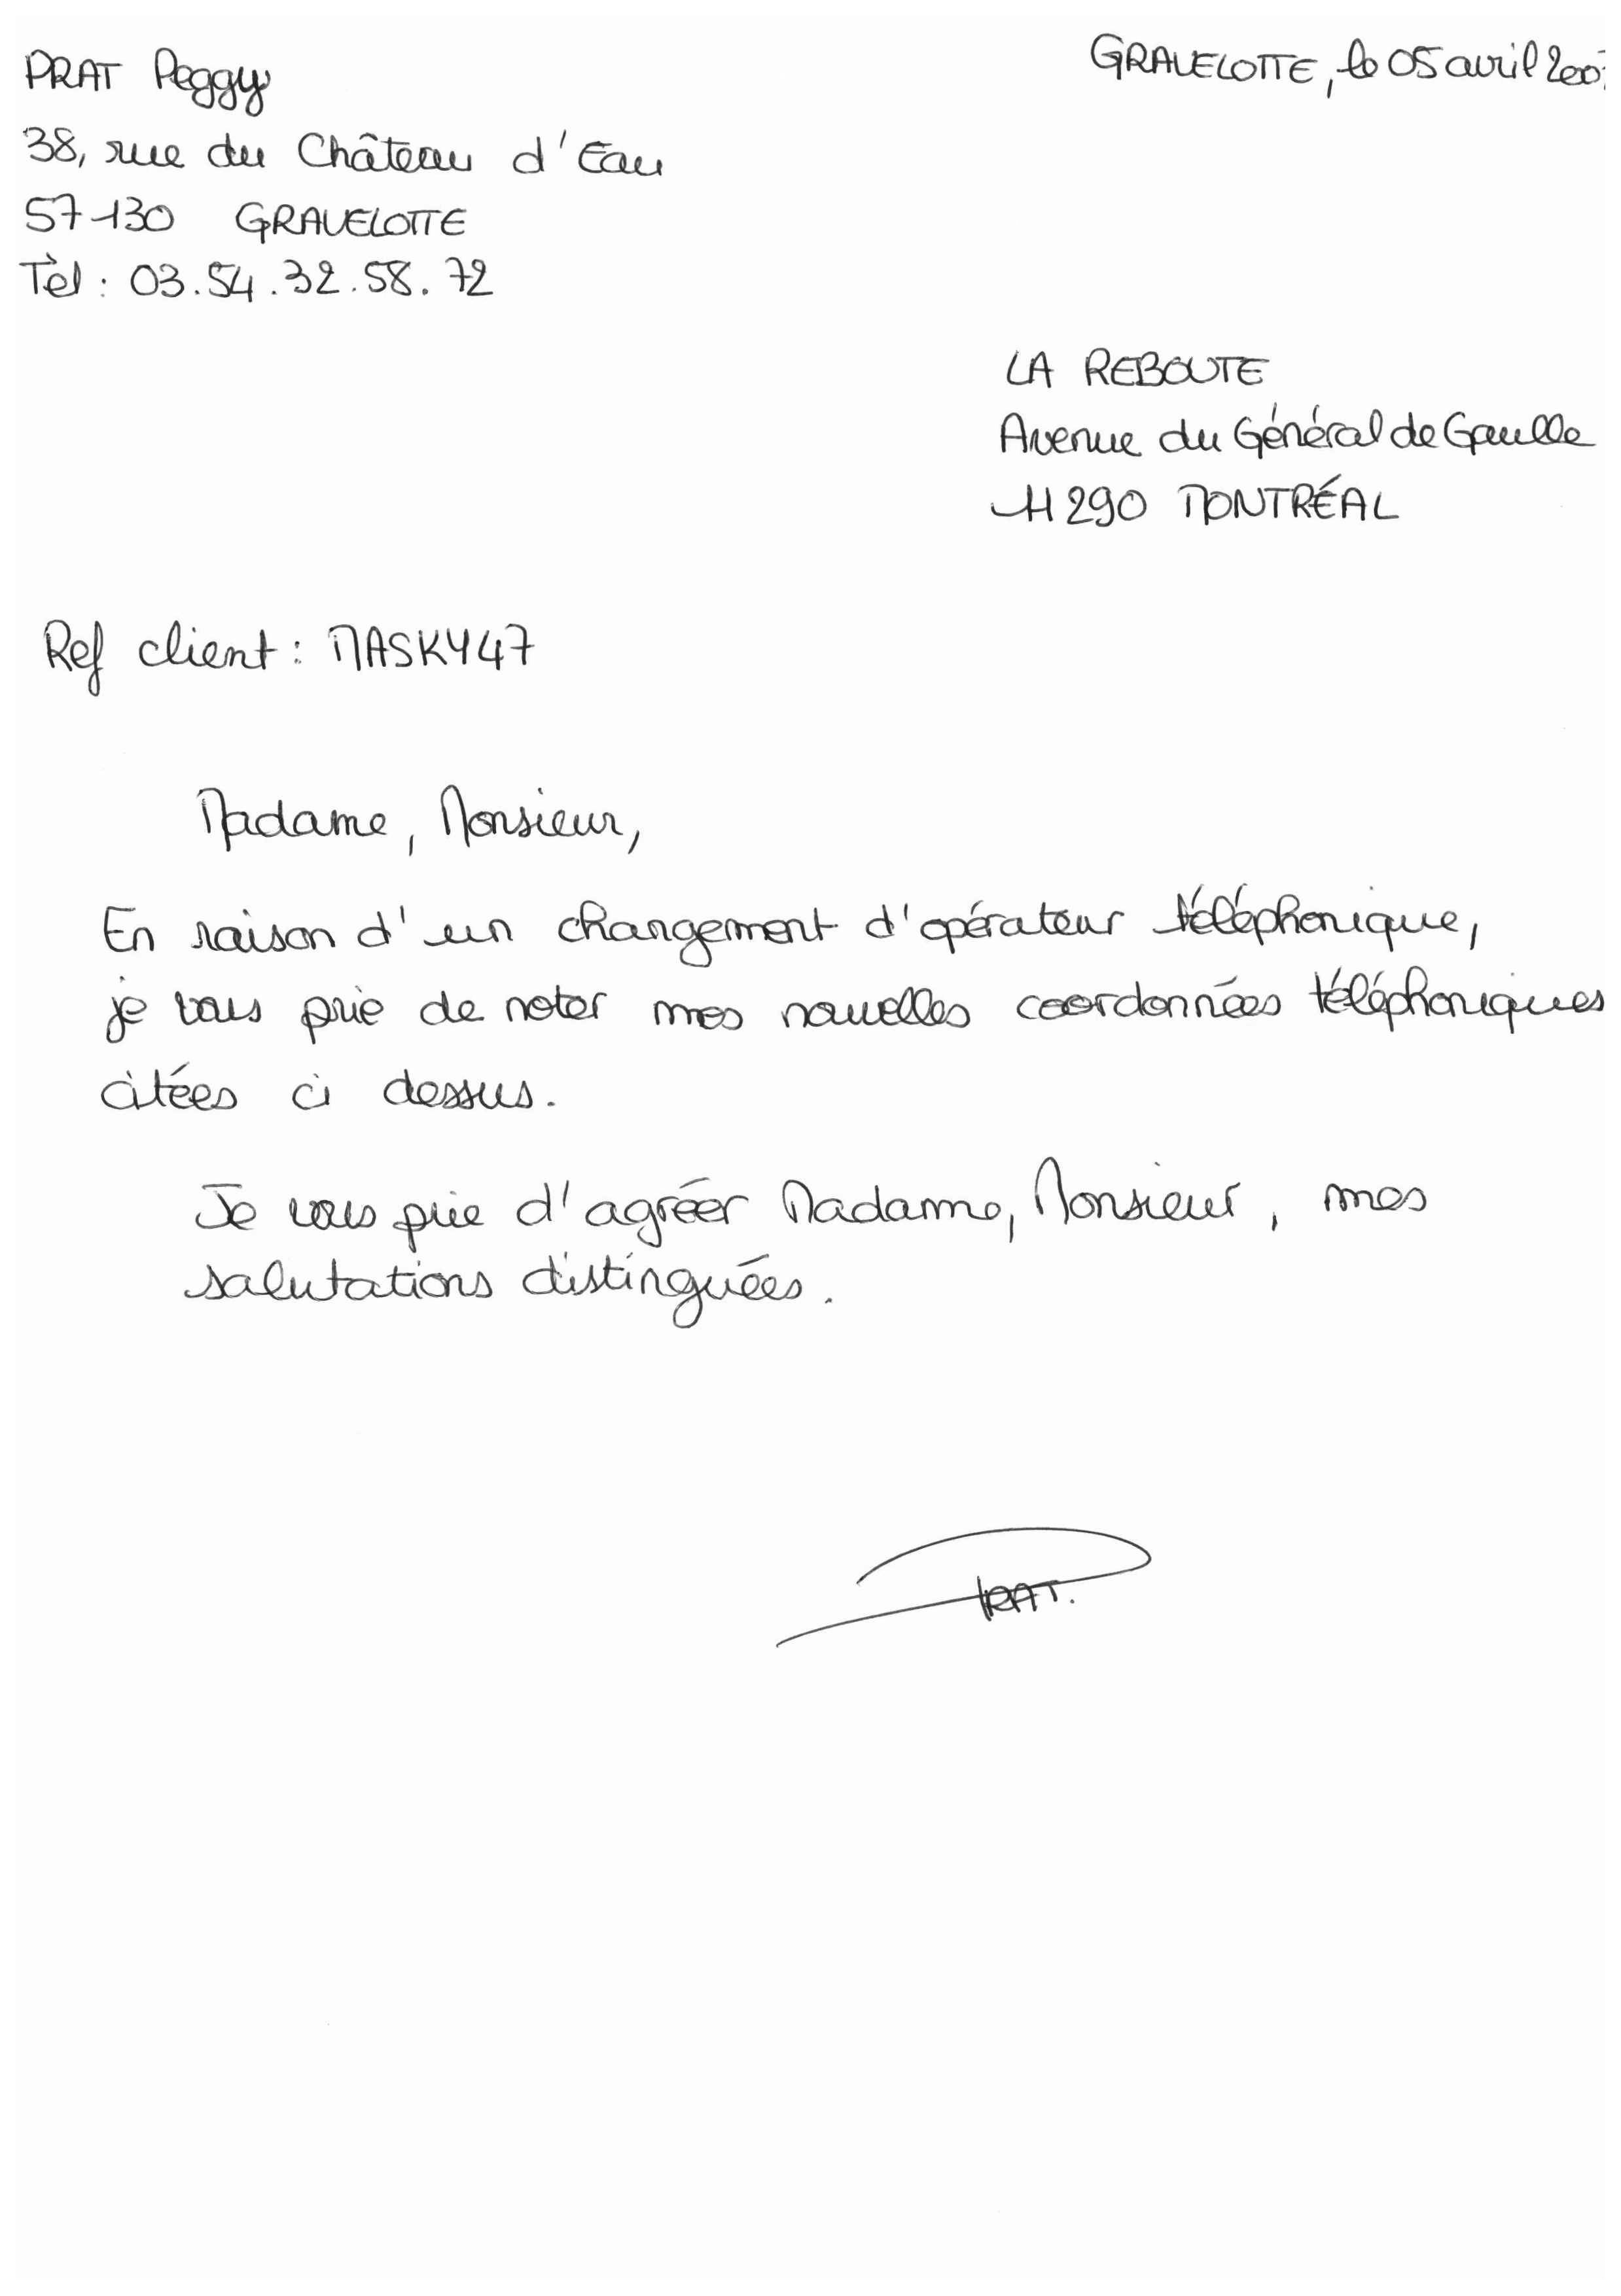 PRAT Peggy
GRAVELOTTE, le 05 avril
38, rue du Château d'Eau
57130 GRAVELOTTE
Tèl : 03.54.32.58.72
LA REBOUTE
Avenue du Général de Gaulle
11290 MONTRÉAL
Ref client : MASKY47
Madame, Monsieur,
En raison d'un changement d'opérateur téléphonique,
je vous prie de noter mes nouvelles coordonnées téléphoniques
citées ci dessus.
Je vous prie d'agréer Madame, Monsieur, mes
salutations distinguées.
PRAT.